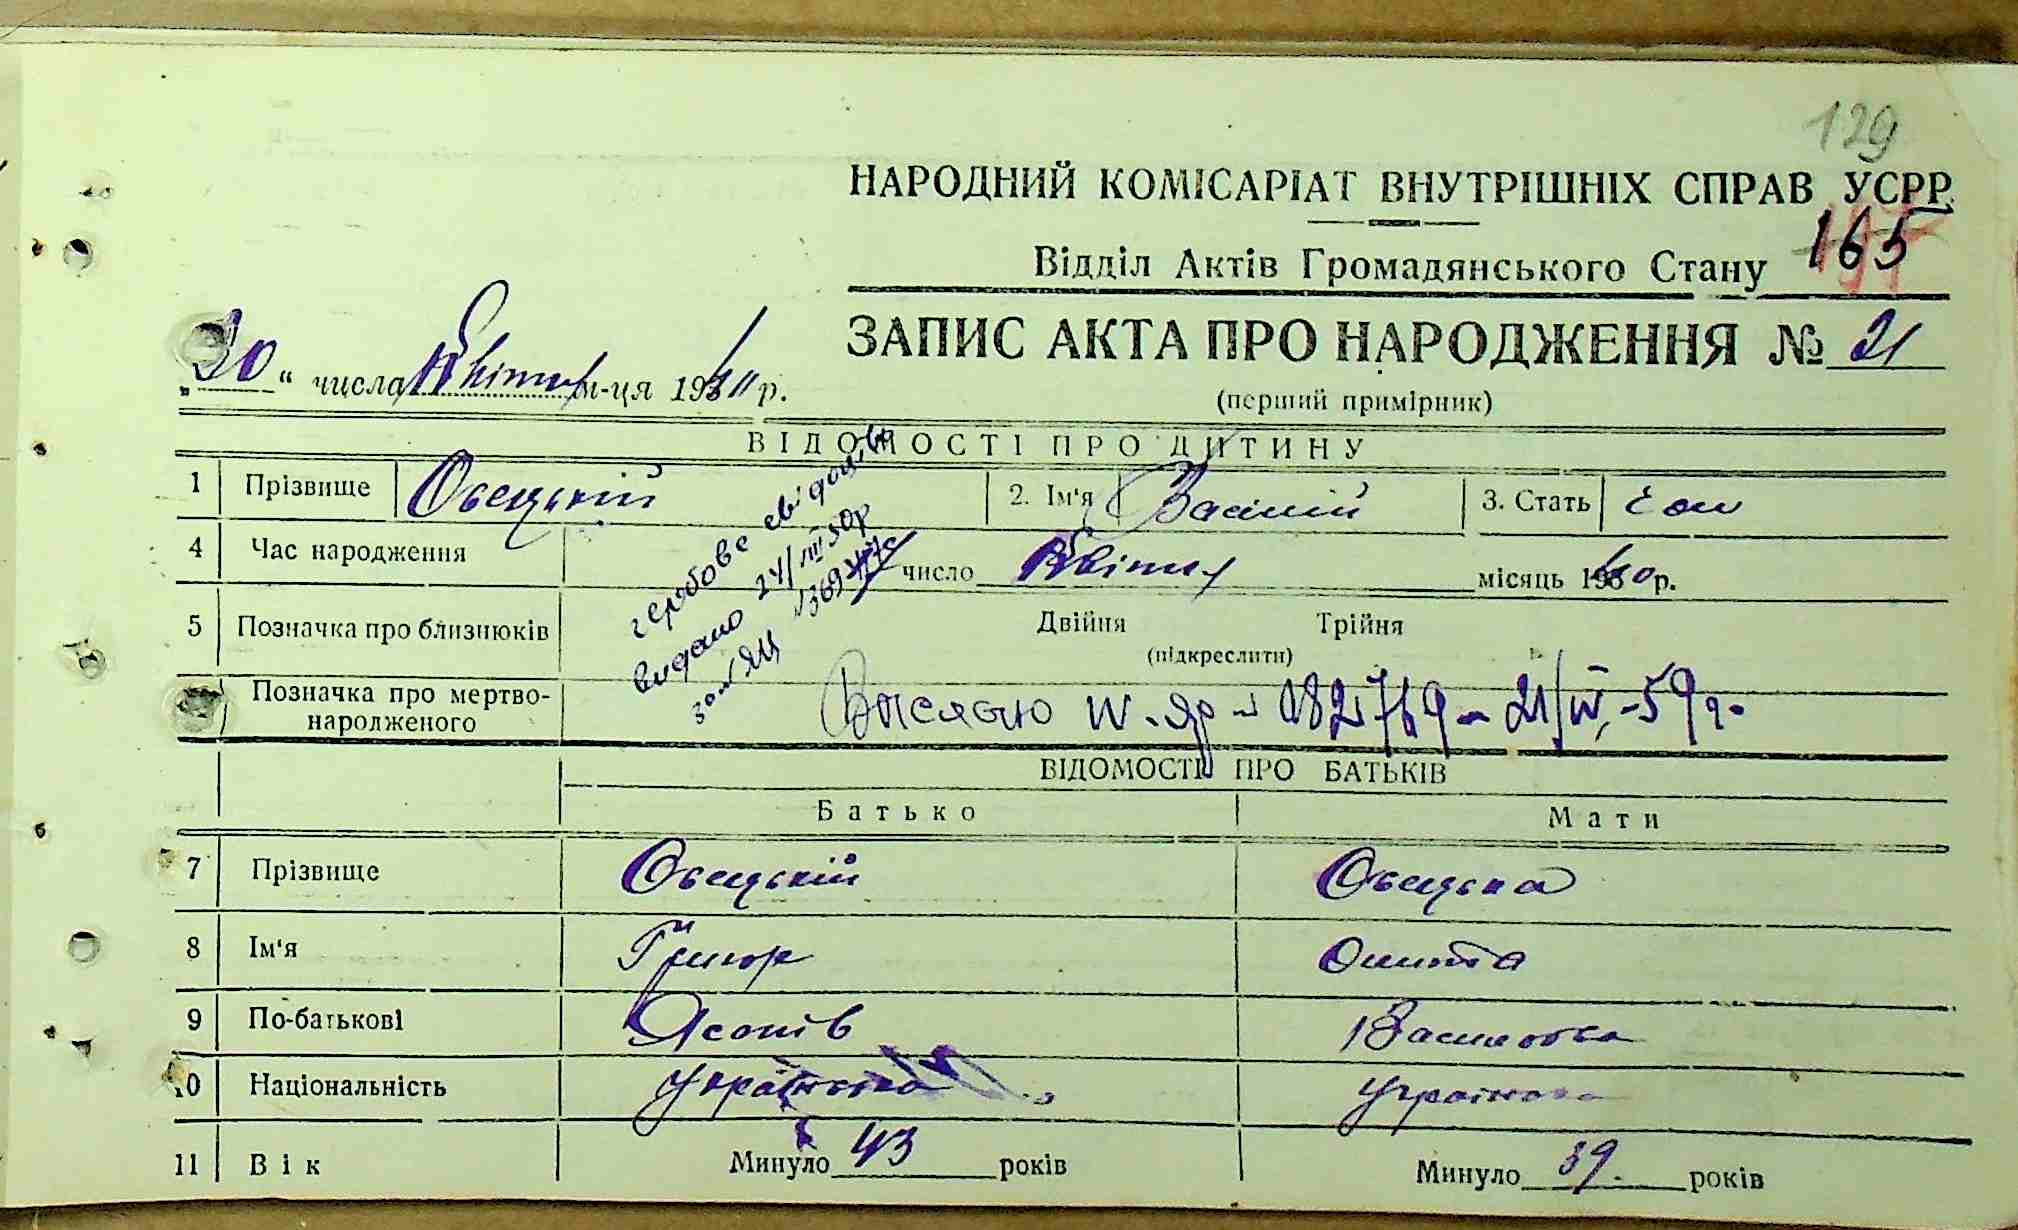 129
НАРОДНИЙ КОМІСАРІАТ ВНУТРІШНІХ СПРАВ УСРР
Відділ Актів Громадянського Стану 165
ЗАПИС АКТА ПРО НАРОДЖЕННЯ № 21
(перший примірник)
„ 30 “ числа Квітня м-ця 1940 р.
ВІДОМОСТІ ПРО ДИТИНУ
1 Прізвище Овецький 2. Ім'я Василій 3. Стать чол
4 Час народження число Квітня місяць 1940 р.
гербове свідоцтво
видано 24/VIII 50р
за № ЯЦ
5 Позначка про близнюків Двійня Трійня
(підкреслити)
Позначка про мертво-
народженого
182769 - 21/IV-59 г.
ВІДОМОСТІ ПРО БАТЬКІВ
Батько Мати
7 Прізвище Овецький Овецька
8 Ім'я Григор
9 По-батькові Василовна
10 Національність Українська Українська
11 Вік Минуло 43 років Минуло 39. років